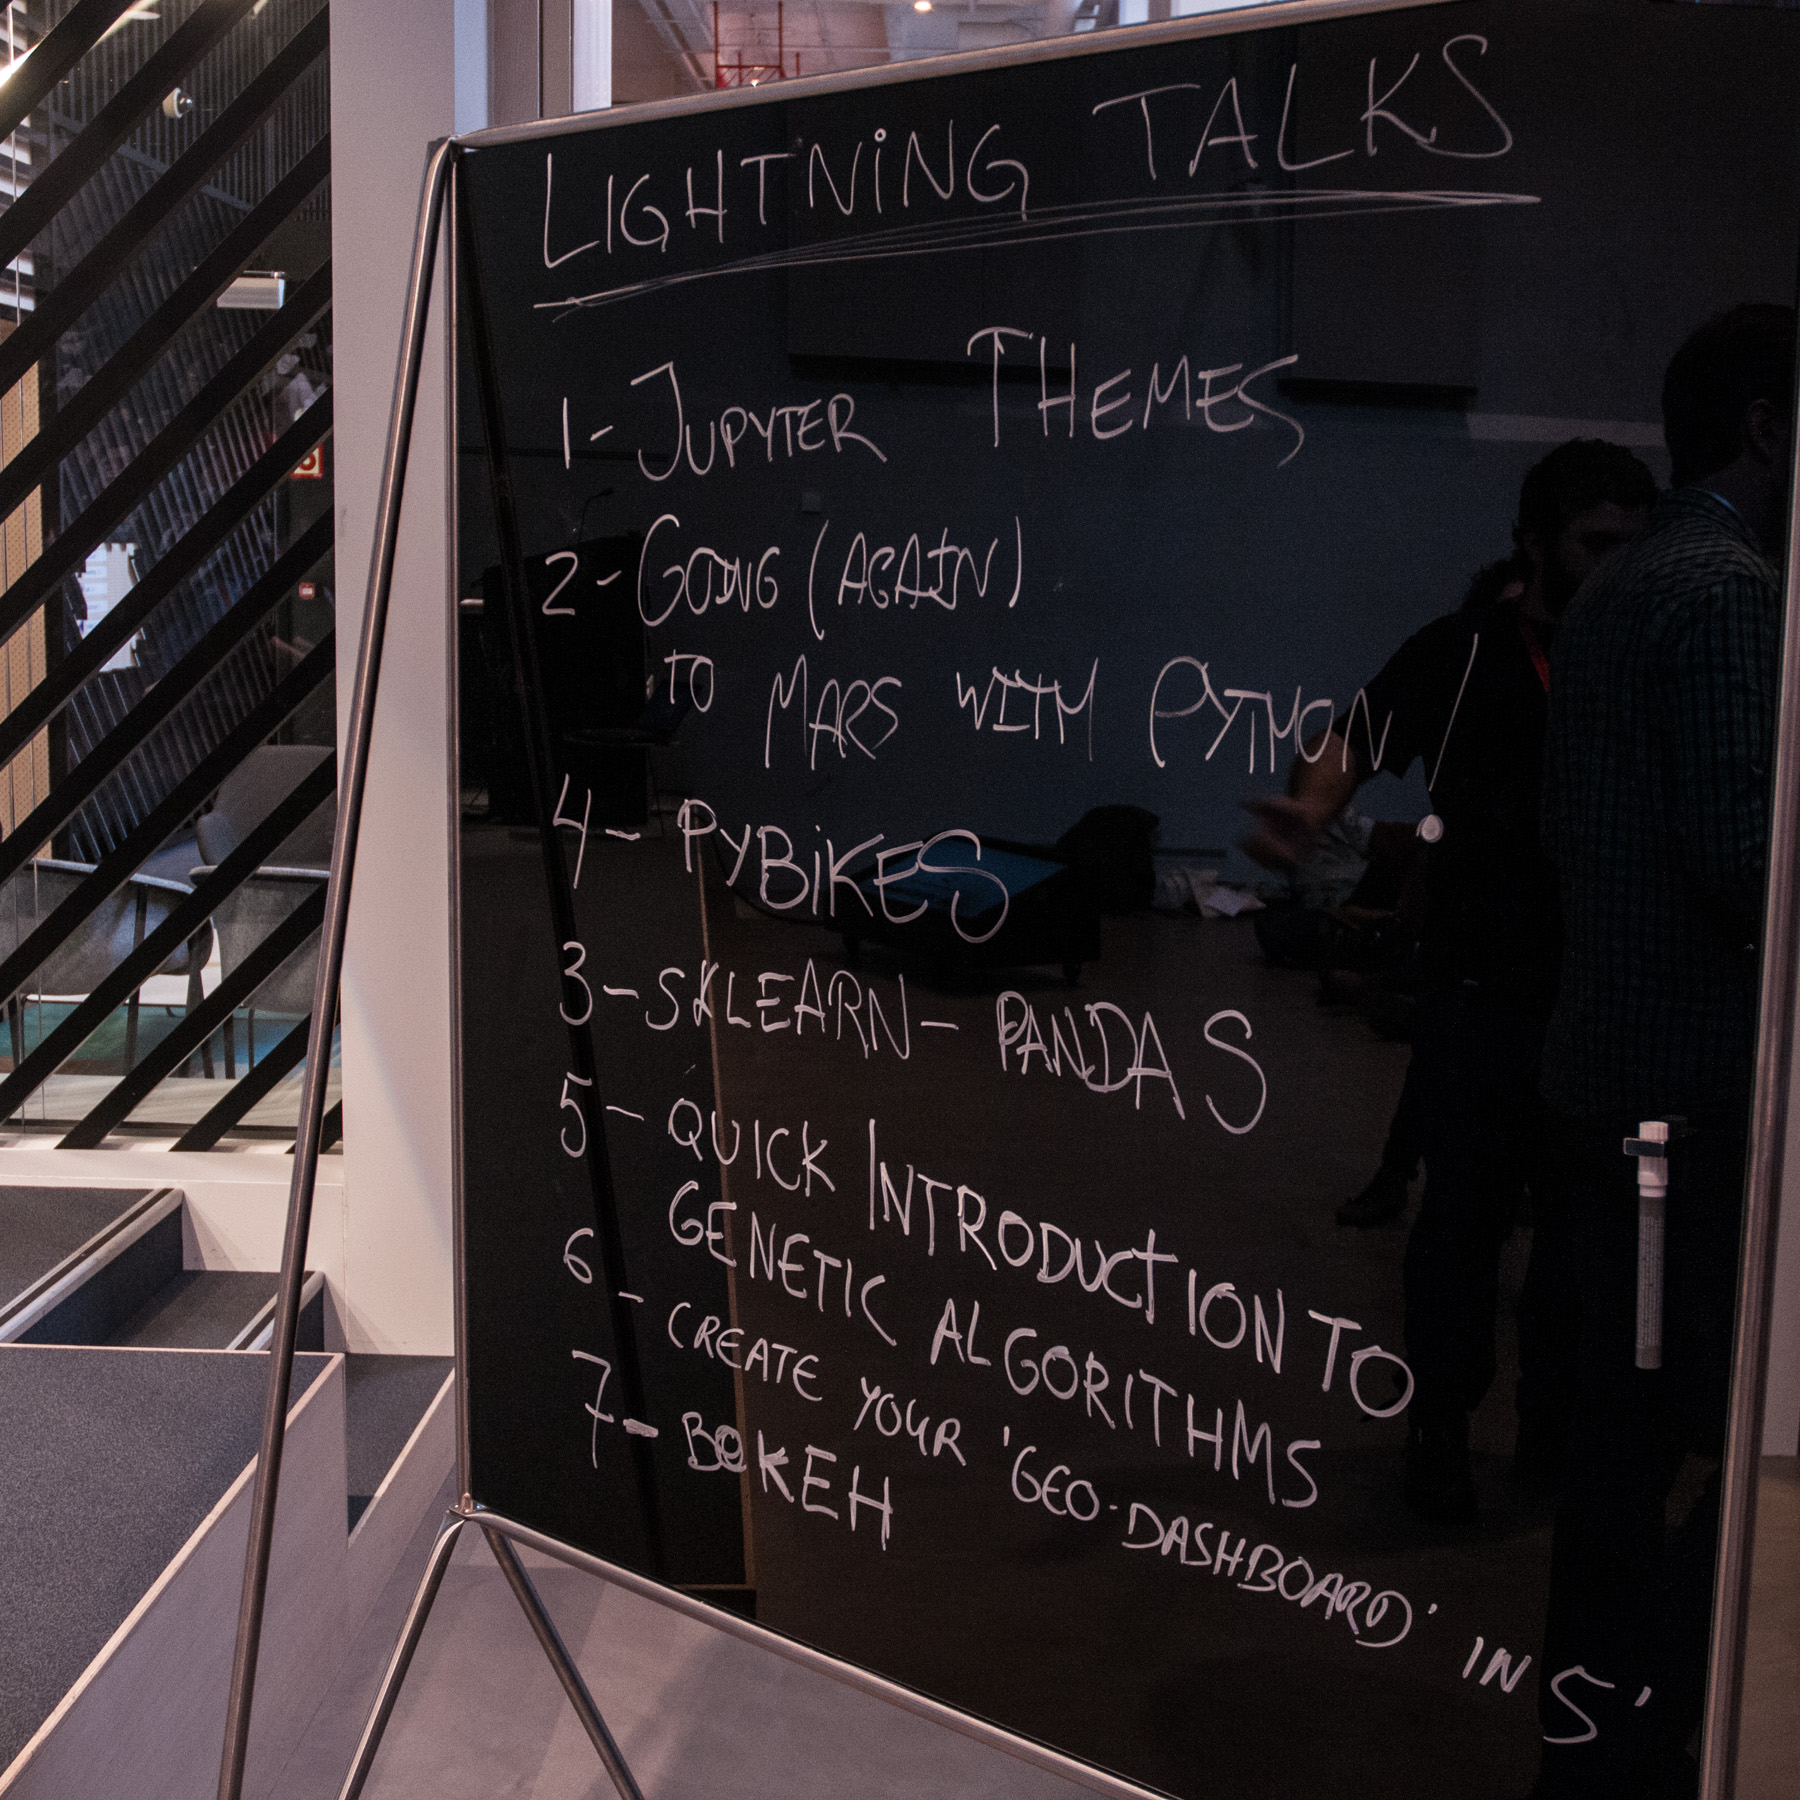 LIGHTNING TALKS
1- JUPYTER THEMES
2- GOING (AGAIN)
TO MARS WITH PYTHON!
4- PYBIKES
3- SKLEARN-PANDAS
5- QUICK INTRODUCTION TO
GENETIC ALGORITHMS
6- CREATE YOUR 'GEO-DASHBOARD' IN 5'
7- BOKEH